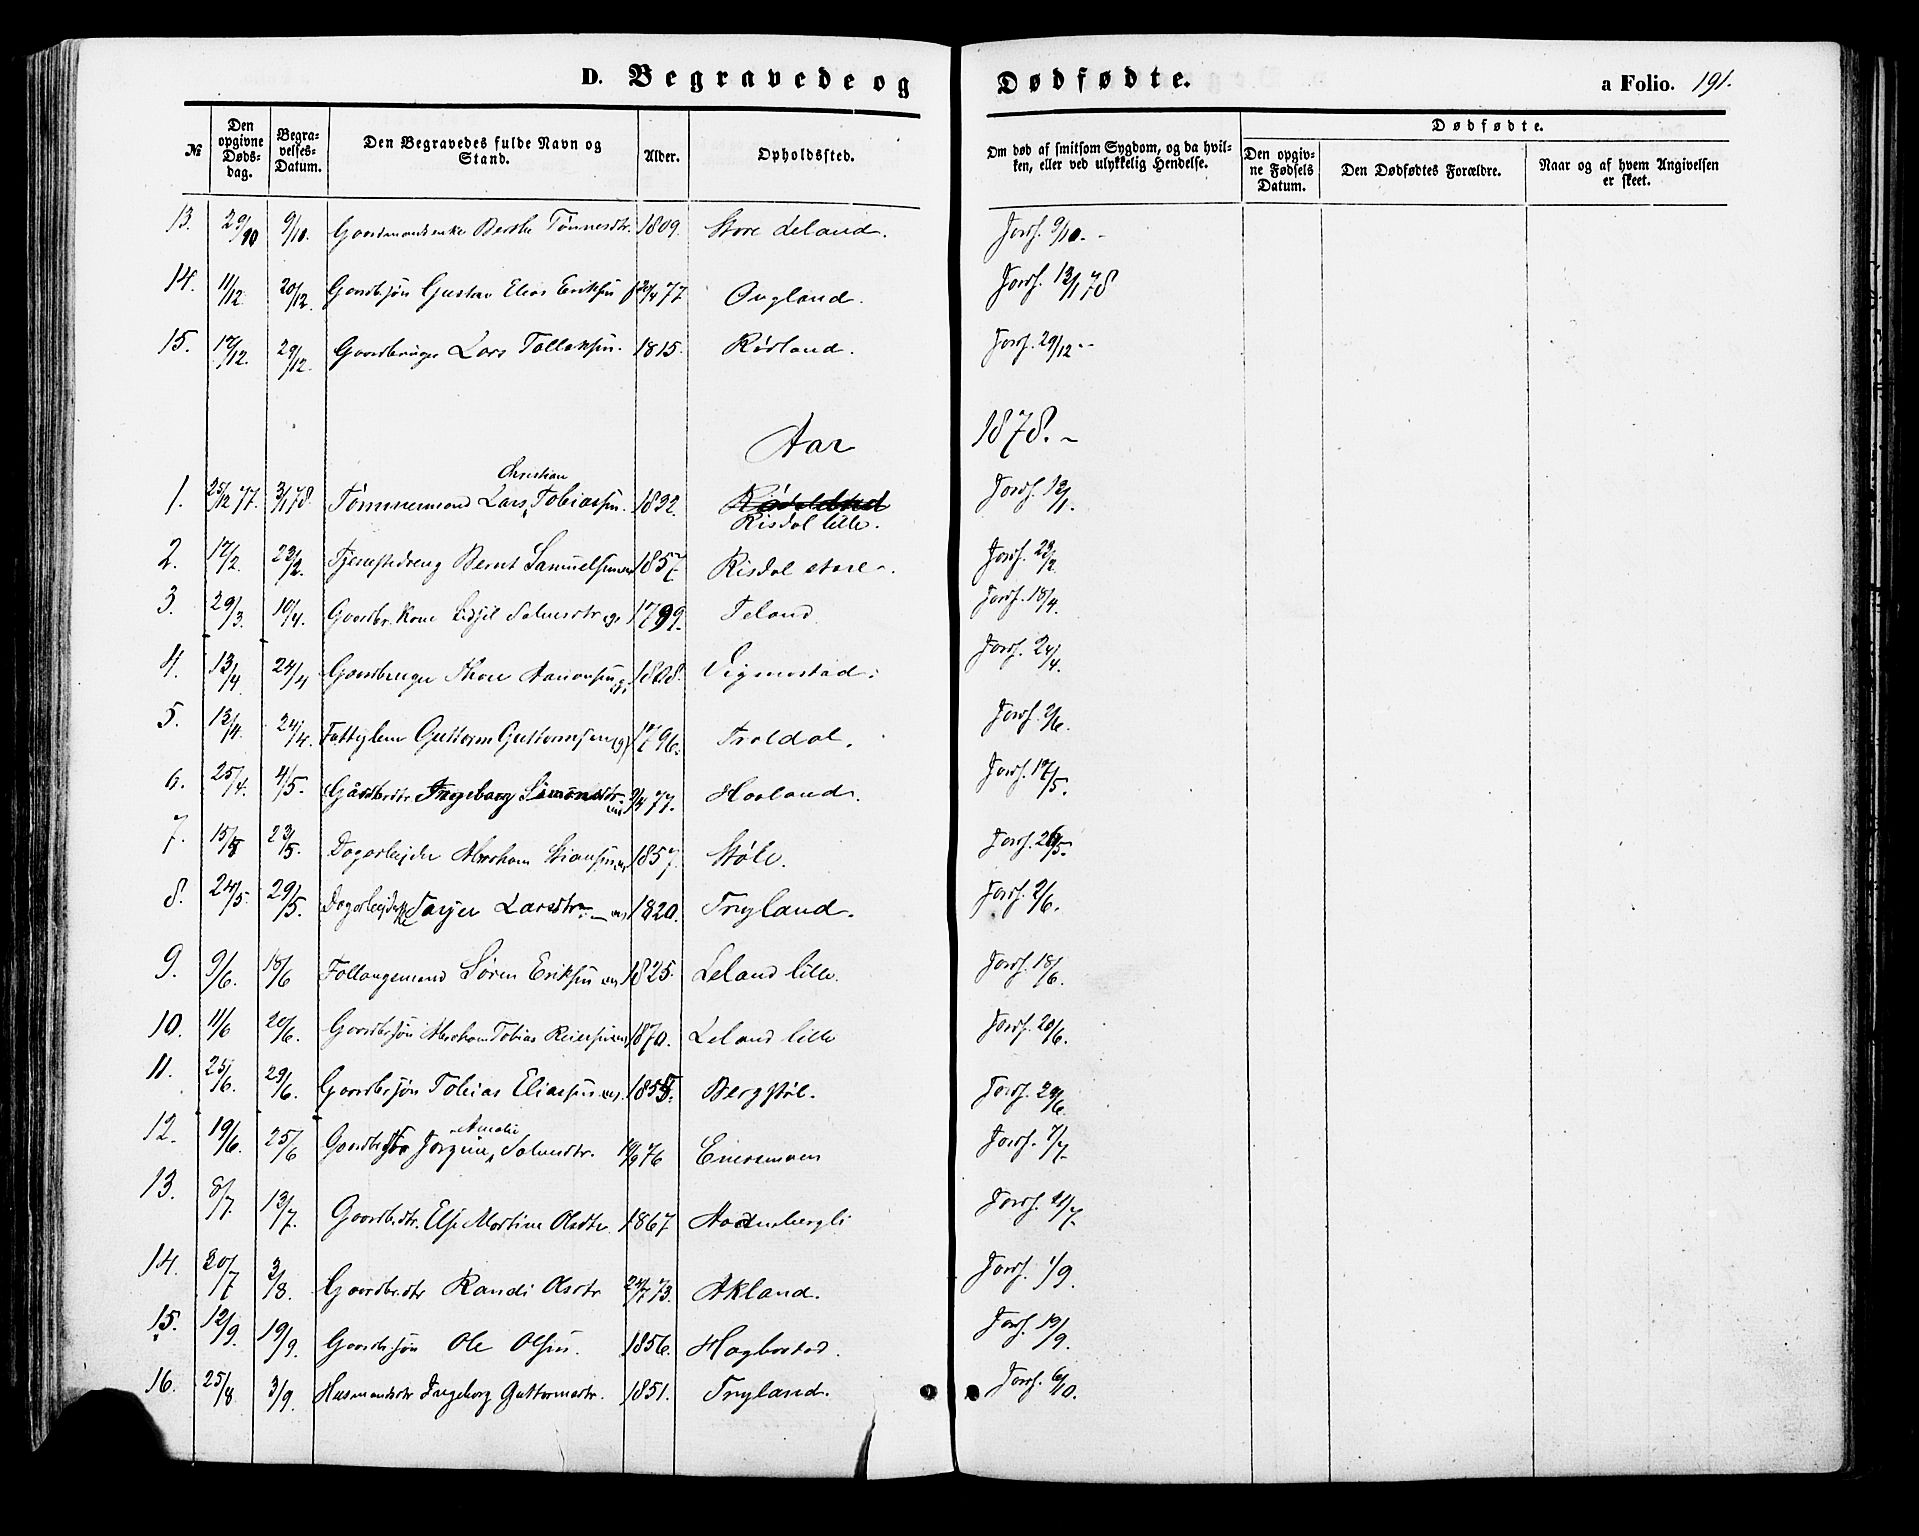 D. Begravede og Dødfødte. a Folio. 191.
№ | Den opgivne Døds-dag. | Begra-velses-Datum. | Den Begravedes fulde Navn og Stand. | Alder. | Opholdssted. | Om død af smitsom Sygdom, og da hvil-ken, eller ved ulykkelig Hendelse. | Dødfødte.
Den opgiv-ne Fødsels Datum. | Den Dødfødtes Forældre. | Naar og af hvem Angivelsen er skeet.
13. 29/10 9/10. Gaardmandsenke Berthe Tønnesdtr. 1809. Store Leland. Jordf. 9/10.-
14. 11/12. 20/12. Gaardbrsøn Gustav Elias Eriksen f 2/4 77 Øvgland. Jordf. 13/1 78
15. 17/12. 29/12. Gaardbruger Lars Tollaksen. 1815. Rødland. Jordf. 29/12 --
Aar 1878.-
Christian
1. 25/12 77. 3/1 78. Tømmermand Lars, Tobiassen. 1832. Jordf. 12/1.
Risdal lille.
2. 17/2. 23/2. Tjenestedreng Bernt Samuelsen 1857 Risdal store. Jordf. 23/2.
3. 29/3. 10/4. Gaardbr. Kone Sidsel Salvesdtr 1799. Teland. Jordf. 18/4.
4. 13/4. 24/4 Gaardbruger Thore Aanonsen 1808. Vigmostad. Jordf. 24/4.
5. 13/4. 24/4. Fattiglem Guttorm Guttormsen (g) 1796. Troldal. Jordf. 2/6.
6. 25/4. 4/5. Gaardbrdtr. Ingeborg Simonsdtr. 9/4 77. Houland. Jordf. 17/5.
7. 15/5 23/5. Dagarbejder Abraham Stiansen 1857. Støle. Jordf. 26/5.
8. 24/5. 29/5. Dagarbejderske Tarjer Larsdtr. 1820. Tryland. Jordf. 2/6.
9. 9/6. 18/6 Føllaugsmand Søren Eriksen 1825. Leland lille. Jordf. 18/6.
10. 11/6 20/6. Gaardbrsøn Abraham Tobias Reiersen 1870. Leland lille Jordf. 20/6.
11. 25/6. 29/6. Gaardbrsøn Tobias Eliassen 1855. Bergstøl. Jordf. 29/6.
Amalie
12. 19/6. 25/6 Gaardbrdtr Jorgine, Salvesdtr. 19/9 76 Eversmoen Jordf. 7/7.
13. 8/7. 13/7. Gaardbrdtr. Else Martine Olsdtr. 1867 Jordf. 21/7.
14. 20/7 3/8. Gaardbrdtr Randi Olsdtr 24/7 73. Akland. Jordf. 1/9.
15. 12/9. 19/9. Gaardbrsøn Ole Olsen. 1856. Hogbostad. Jordf. 19/9.
16. 25/8 3/9. Husmandsdtr Ingeborg Guttormsdtr. 1851. Tryland. Jordf. 6/10.